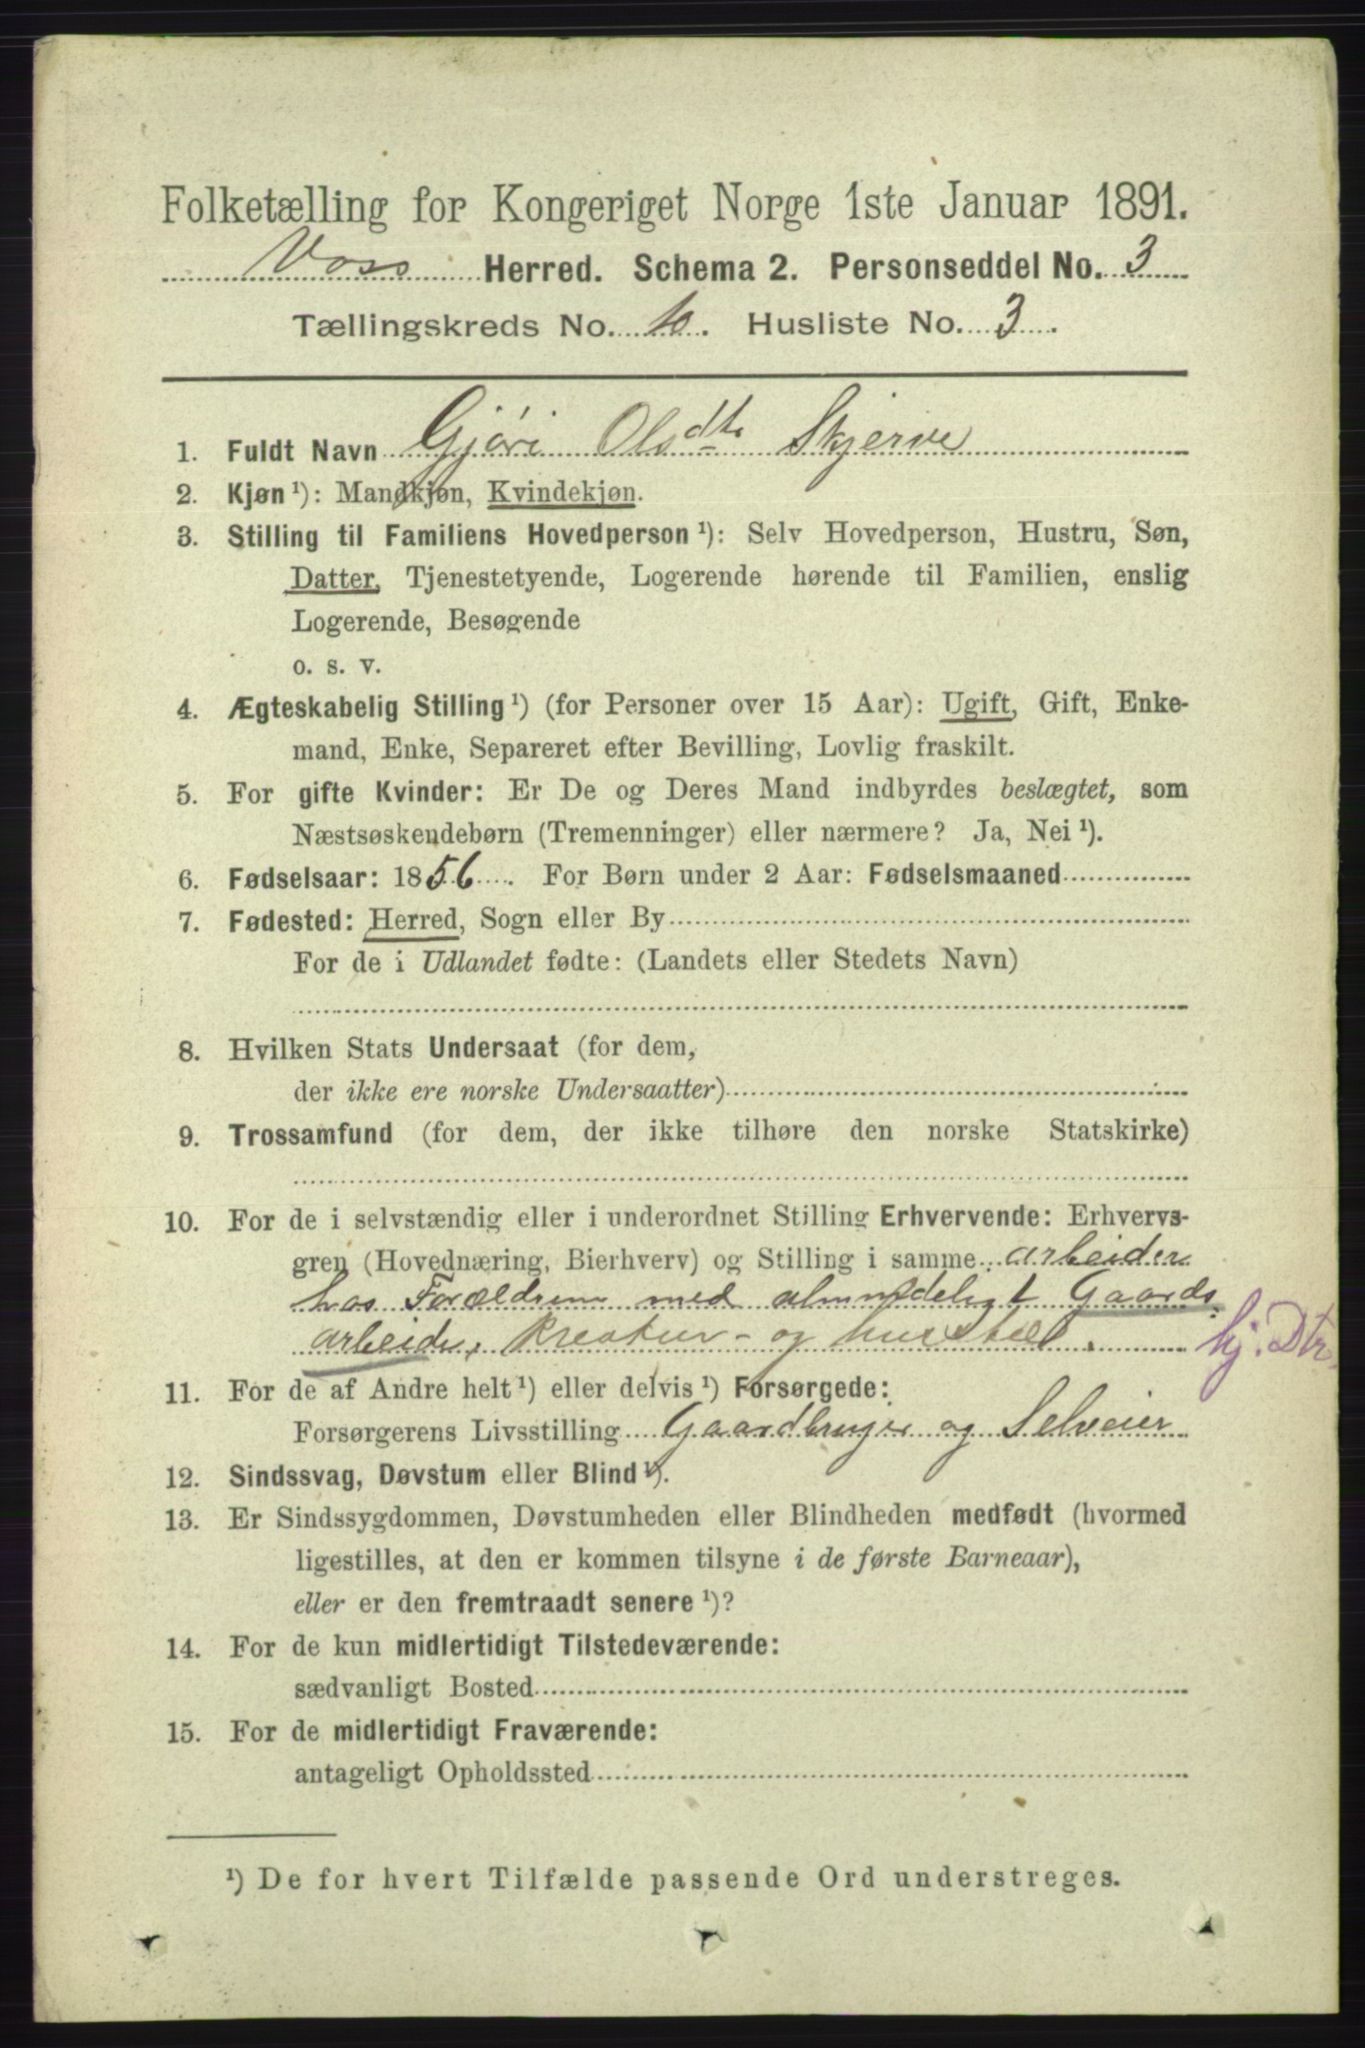 Folketælling for Kongeriget Norge 1ste Januar 1891.
Voss Herred. Schema 2. Personseddel No. 3
Tællingskreds No. 10. Husliste No. 3.
1. Fuldt Navn Gjøri Olsdtr Skjerve
2. Kjøn ¹): Mandkjøn, Kvindekjøn.
3. Stilling til Familiens Hovedperson ¹): Selv Hovedperson, Hustru, Søn,
Datter, Tjenestetyende, Logerende hørende til Familien, enslig
Logerende, Besøgende
o. s. v.
4. Ægteskabelig Stilling ¹) (for Personer over 15 Aar): Ugift, Gift, Enke-
mand, Enke, Separeret efter Bevilling, Lovlig fraskilt.
5. For gifte Kvinder: Er De og Deres Mand indbyrdes beslægtet, som
Næstsøskendebørn (Tremenninger) eller nærmere? Ja, Nei ¹).
6. Fødselsaar: 1856. For Børn under 2 Aar: Fødselsmaaned
7. Fødested: Herred, Sogn eller By
For de i Udlandet fødte: (Landets eller Stedets Navn)
8. Hvilken Stats Undersaat (for dem,
der ikke ere norske Undersaatter)
9. Trossamfund (for dem, der ikke tilhøre den norske Statskirke)
10. For de i selvstændig eller i underordnet Stilling Erhvervende: Erhvervs-
gren (Hovednæring, Bierhverv) og Stilling i samme arbeider
hos Forældrene med almindeligt Gaards
arbeide, Kreatur- og husstell. hj. Dtr.
11. For de af Andre helt ¹) eller delvis ¹) Forsørgede:
Forsørgerens Livsstilling Gaardbruger og Selveier
12. Sindssvag, Døvstum eller Blind ¹).
13. Er Sindssygdommen, Døvstumheden eller Blindheden medfødt (hvormed
ligestilles, at den er kommen tilsyne i de første Barneaar),
eller er den fremtraadt senere ¹)?
14. For de kun midlertidigt Tilstedeværende:
sædvanligt Bosted
15. For de midlertidigt Fraværende:
antageligt Opholdssted
¹) De for hvert Tilfælde passende Ord understreges.